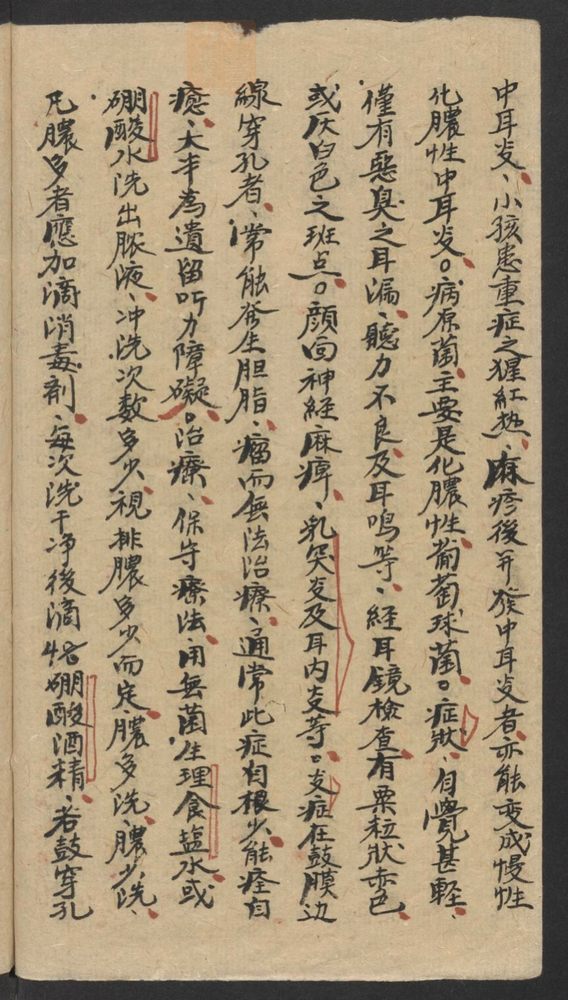 中耳炎、小孩患重症之猩紅热、麻疹後并發中耳炎者、亦能变成慢性
化膿性中耳炎。病原菌、主要是化膿性葡萄球菌。症狀、自覺甚輕、
僅有惡臭之耳漏、聽力不良、及耳鳴等、経耳鏡檢查、有粟粒狀赤色
或灰白色之斑点。顔面神経麻痺、乳突炎及耳内炎等。炎症在鼓膜边
線穿孔者、常能發生胆脂、瘤而無法治療、通常此症自根少、能痊自
癒、大半為遺留听力障礙。治療、保守療法、用無菌生理食盐水或
硼酸水洗出膿液、冲洗次数多少、視排膿多少而定、膿多洗、膿少洗、
凡膿多者應加滴消毒剤、每次洗干净後滴硼酸酒精、若鼓穿孔